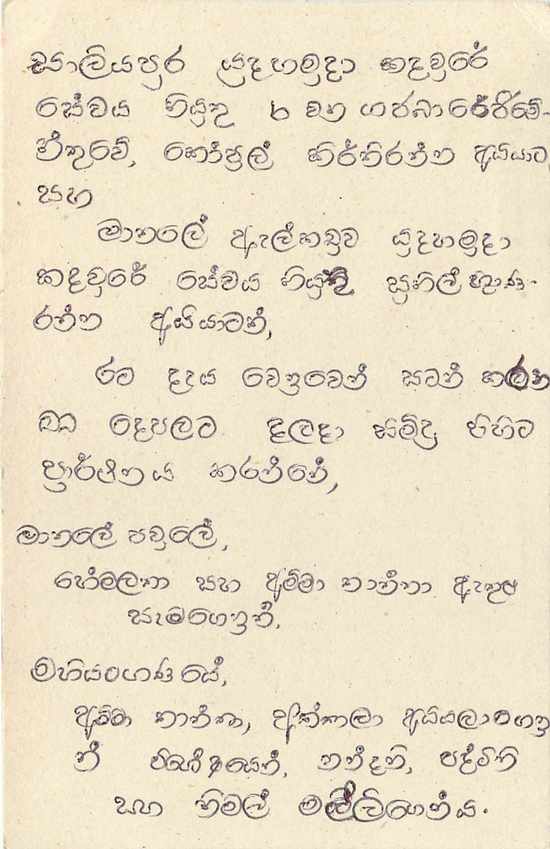 සාලියපුර යුදහමුදා කදවුරේ
සේවය නියුතු 6 වන ගජබා රේජිමේ-
න්තුවේ, කෝප්‍රල් කිර්තිරත්න අයියාට
සහ
මාතලේ ඇල්කඩුව යුදහමුදා
කදවුරේ සේවය නියුතු සුනිල් භාණ-
රත්න අයියාටත්,
රට දැය වෙනුවෙන් සටන් කරන
ඔබ දෙපලට දළදා සමිදු පිහිට
ප්‍රාර්ථනය කරන්නේ,
මාතලේ පවුලේ,
හේමලතා සහ අම්මා තාත්තා ඇතුළු
සැමගෙනුත්.
මහියංගණයේ,
අම්මා තාත්තා, අක්කලා අයියලාගෙනු
ත් විශේෂයෙන්, නන්දනි, පද්මිනි
සහ නිමල් මල්ලිගෙන්ය.